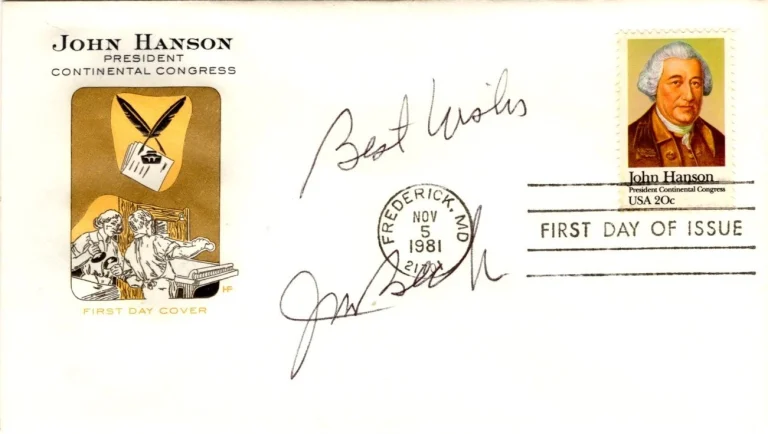 JOHN HANSON
PRESIDENT
CONTINENTAL CONGRESS
HF
FIRST DAY COVER
Best Wishes
FREDERICK, MD
NOV
5
1981
John Hanson
President Continental Congress
USA 20c
FIRST DAY OF ISSUE